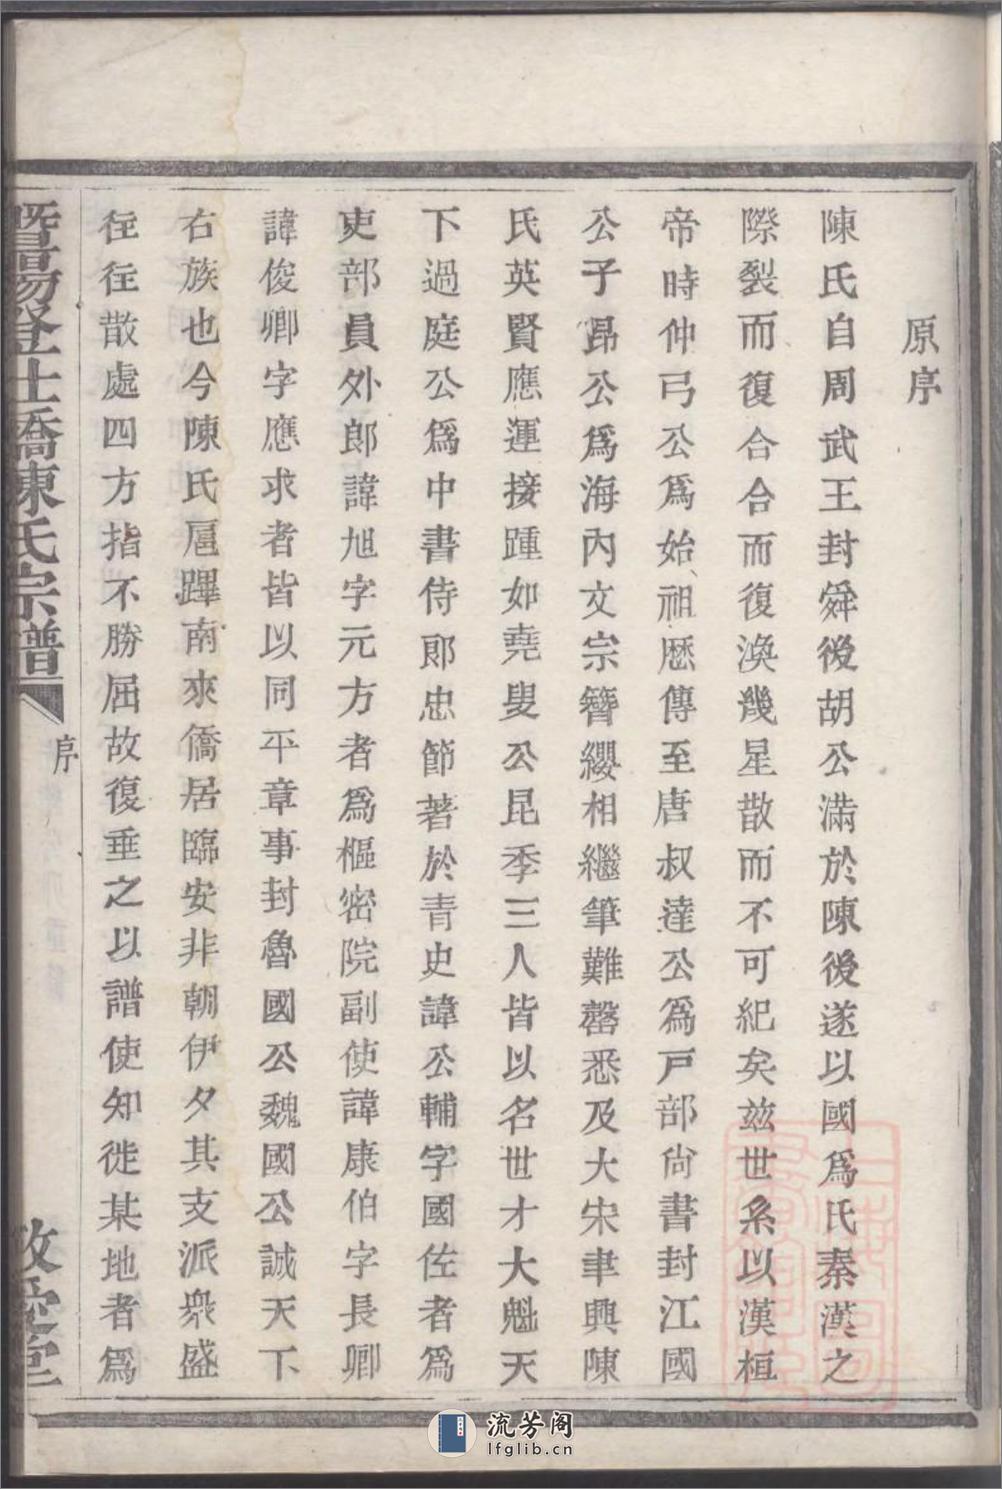 原序
陳氏自周武王封舜後胡公滿於陳後遂以國爲氏秦漢之
際裂而復合合而復渙幾星散而不可紀矣茲世系以漢桓
帝時仲弓公爲始祖歷傳至唐叔達公爲戸部尙書封江國
公子昂公爲海內文宗簪纓相繼筆難罄悉及大宋聿興陳
氏英賢應運接踵如堯叟公昆季三人皆以名世才大魁天
下過庭公爲中書侍郞忠節著於青史諱公輔字國佐者爲
吏部員外郎諱旭字元方者爲樞密院副使諱康伯字長卿
諱俊卿字應求者皆以同平章事封魯國公魏國公誠天下
右族也今陳氏扈蹕南來僑居臨安非朝伊夕其支派衆盛
徃徃散處四方指不勝屈故復垂之以譜使知徙某地者爲
暨陽登仕橋陳氏宗譜
序
敬愛堂
流芳阁
lfglib.cn